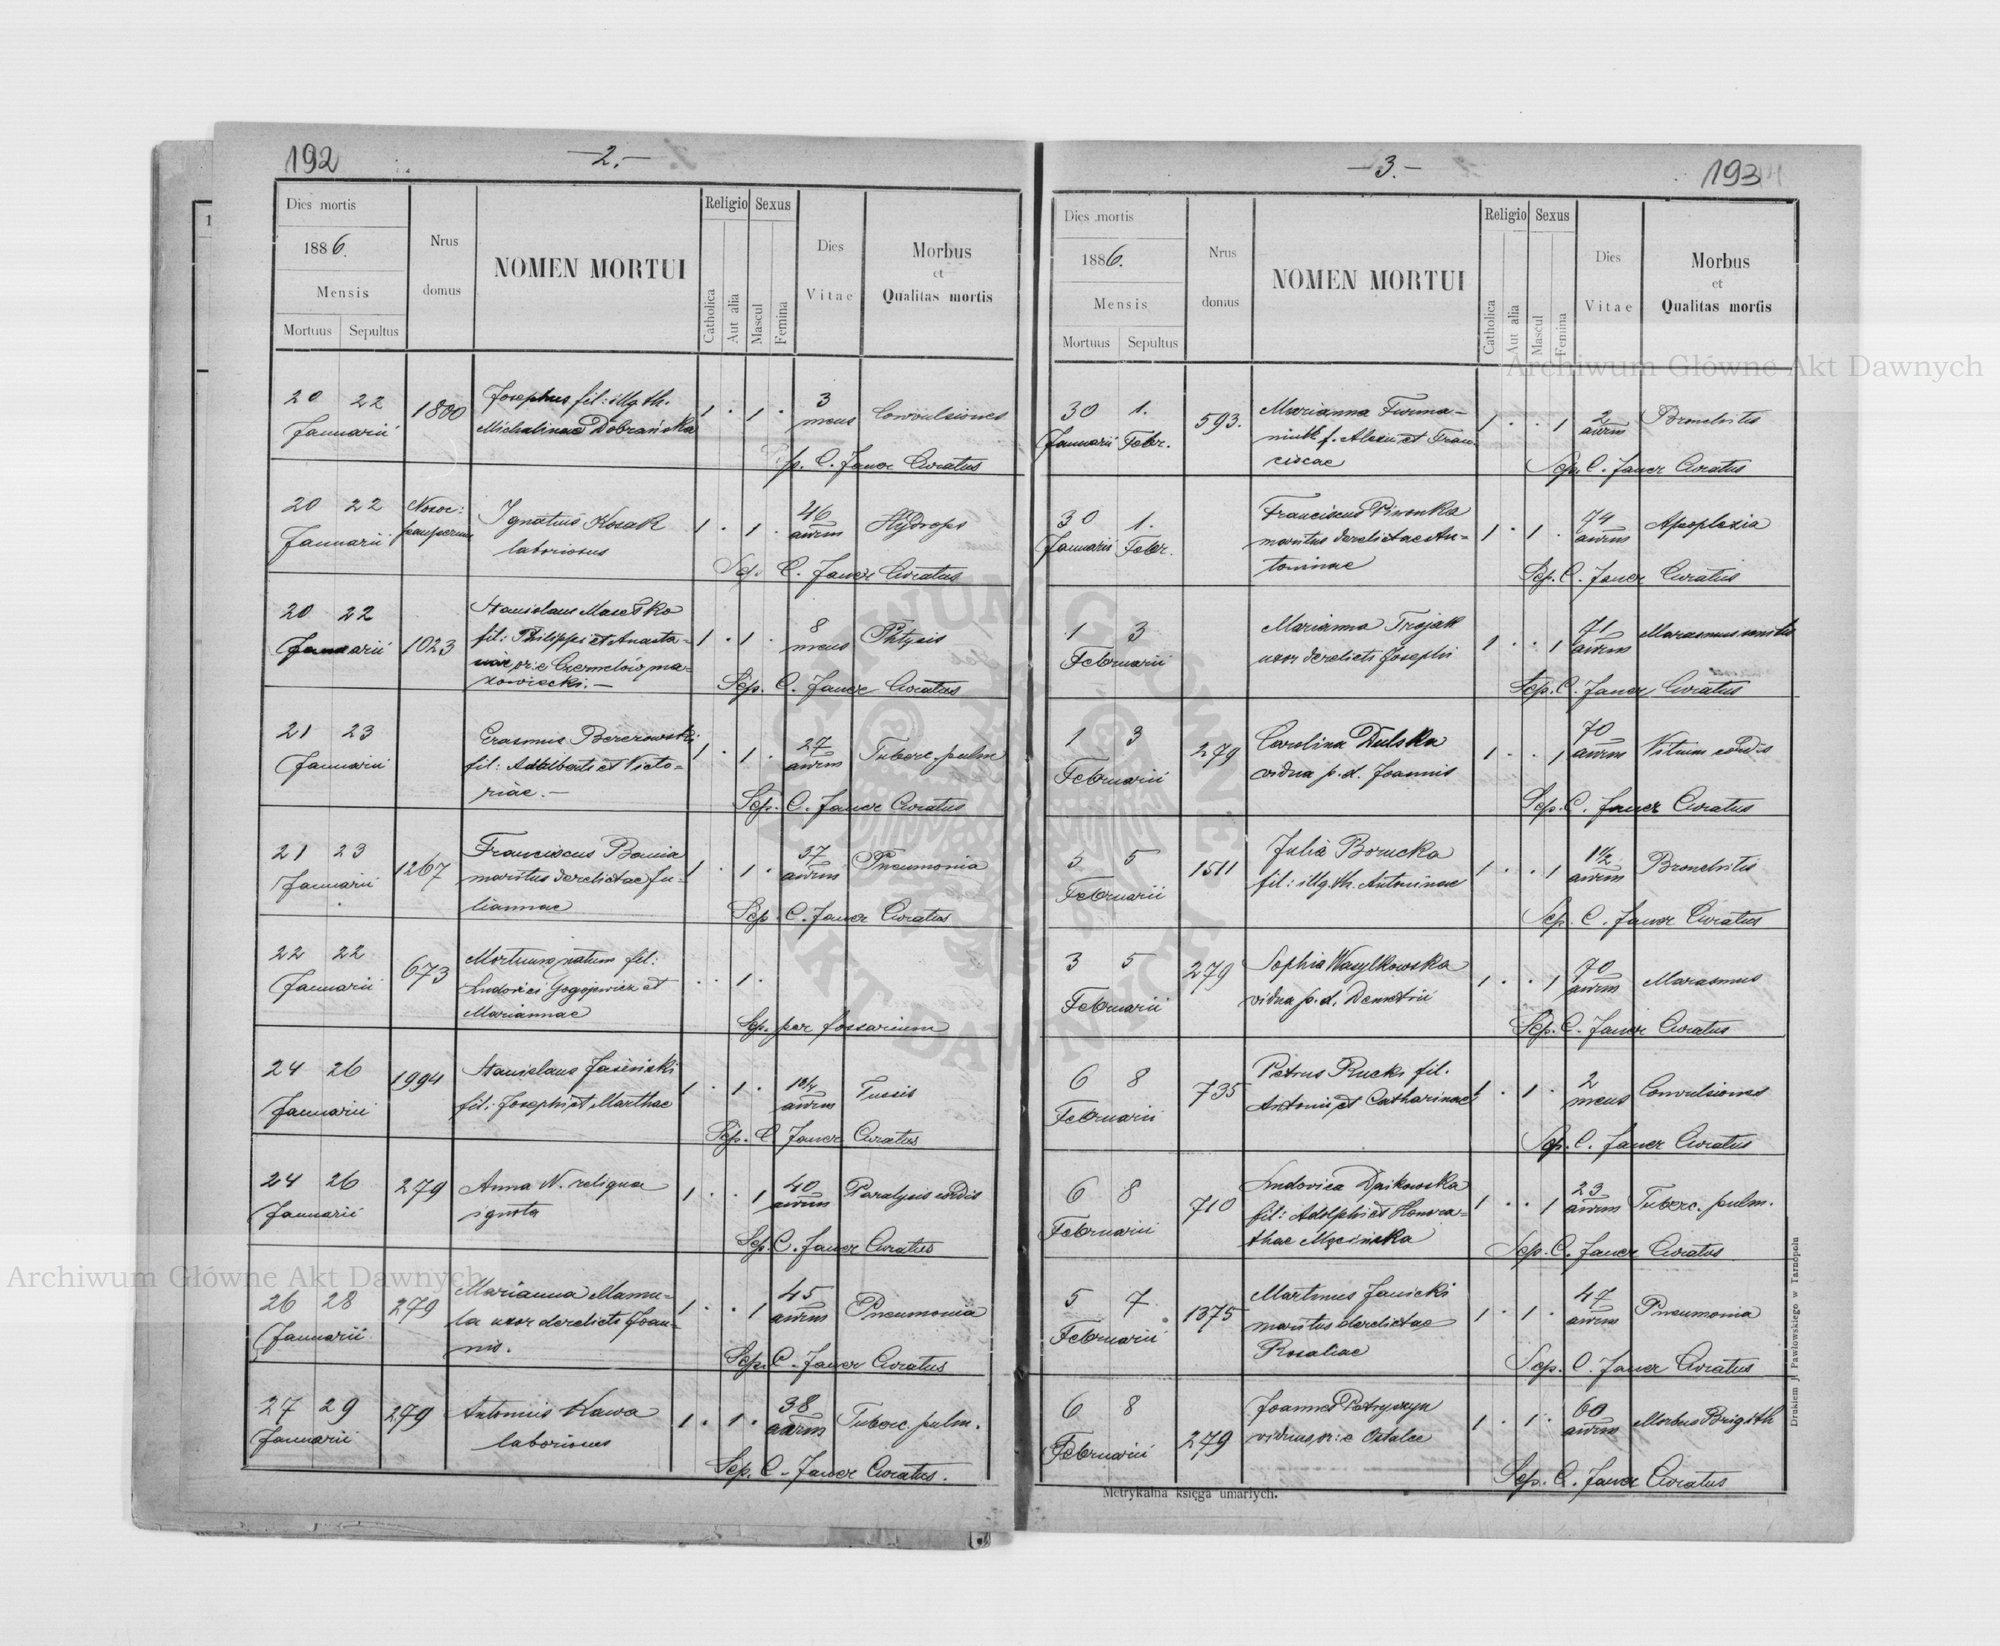 192
- 2. -
Dies mortis
1886.
Mensis
Mortuus Sepultus
Nrus domus
NOMEN MORTUI
Religio Sexus
Catholica Aut alia Mascul Femina
Dies Vitae
Morbus
et
Qualitas mortis
20 22 Januarii 1800 Josephus fil: illg. th.
Michalinae Dobrańska 1 . 1 . 3 mens Convulsiones
Sep. C. Jauer Curatus
20 22 Januarii Nosoc: pauperum Ignatius Kozak
laboriosus 1 . 1 . 46 annrm Hydrops
Sep. C. Jauer Curatus
20 22 Januarii 1023 Stanislaus
fil: Philippi et Anasta-
1 . 1 . 8 mens Phtysis
Sep. C. Jauer Curatus
21 23 Januarii Erasmus
fil: Adalberti et Victo-
riae. - 1 . 1 . 27 annrm Tuberc. pulm
Sep. C. Jauer Curatus
21 23 Januarii 1267 Franciscus
maritus derelictae Ju-
liannae 1 . 1 . 37 annrm Pneumonia
Sep. C. Jauer Curatus
22 22 Januarii 673 Mortuum natum fil:
Ludovici et
Mariannae . . 1 .
Sep. per fossarium
24 26 Januarii 1994 Stanislaus Jasiński
fil: Josephi et Marthae 1 . 1 . annrm Tussis
Sep. C. Jauer Curatus
24 26 Januarii 279 Anna N. reliqua
ignota 1 . . 1 40 annrm Paralysis cordis
Sep. C. Jauer Curatus
26 28 Januarii 279 Marianna Mamu-
la uxor derelicti Joan-
nis. 1 . . 1 45 annrm Pneumonia
Sep. C. Jauer Curatus
27 29 Januarii 279 Antonius Kawa
laboriosus 1 . 1 . 38 annrm Tuberc. pulm.
Sep. C. Jauer Curatus.
- 3. -
193
Dies mortis
1886.
Mensis
Mortuus Sepultus
Nrus domus
NOMEN MORTUI
Religio Sexus
Catholica Aut alia Mascul Femina
Dies Vitae
Morbus
et
Qualitas mortis
30 Januarii 1. Febr. 593. Marianna Furma-
niuk f. Alexii et Fran-
ciscae 1 . . 1 2 annrm Bronchitis
Sep. C. Jauer Curatus
30 Januarii 1. Febr. Franciscus Piwonka
maritus derelictae An-
toninae 1 . 1 . 74 annrm Apoplexia
Sep. C. Jauer Curatus
1 3 Februarii Marianna Trojak
uxor derelicti Josephi 1 . . 1 71 annrm Marasmus senilis
Sep. C. Jauer Curatus
1 3 Februarii 279 Carolina Dulska
vidua p. d. Joannis 1 . . 1 70 annrm Vitium cordis
Sep. C. Jauer Curatus
5 5 Februarii 1511 Julia Borucka
fil: illg. th. Antoninae 1 . . 1 1½ annrm Bronchitis
Sep. C. Jauer Curatus
3 5 Februarii 279 Sophia Wasylkowska
vidua p. d. Demetrii 1 . . 1 70 annrm Marasmus
Sep. C. Jauer Curatus
6 8 Februarii 735 Petrus Rucki fil.
Antonii et Catharinae 1 . 1 . 2 mens Convulsiones
Sep. C. Jauer Curatus
6 8 Februarii 710 Ludovica Dąikowska
fil: Adolphi et Honora-
thae Męcińska 1 . . 1 23 annrm Tuberc. pulm.
Sep. C. Jauer Curatus
5 7 Februarii 1375 Martinus Janicki
maritus derelictae
Rosaliae 1 . 1 . 47 annrm Pneumonia
Sep. C. Jauer Curatus
6 8 Februarii 279 Joannes Petryszyn
viduus, or: e Ostalce 1 . 1 . 60 annrm Morbus Brigith
Sep. C. Jauer Curatus
Metrykalna księga umarłych.
Drukiem J. Pawłowskiego w Tarnopolu
Archiwum Główne Akt Dawnych
Archiwum Główne Akt Dawnych
ARCHIWUM GŁÓWNE AKT DAWNYCH